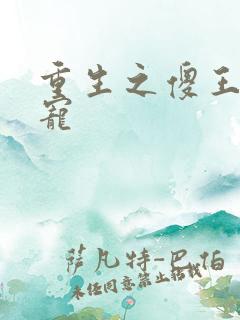 重生之傻王
寵
萨凡特-巴伯
未经同意禁止转载